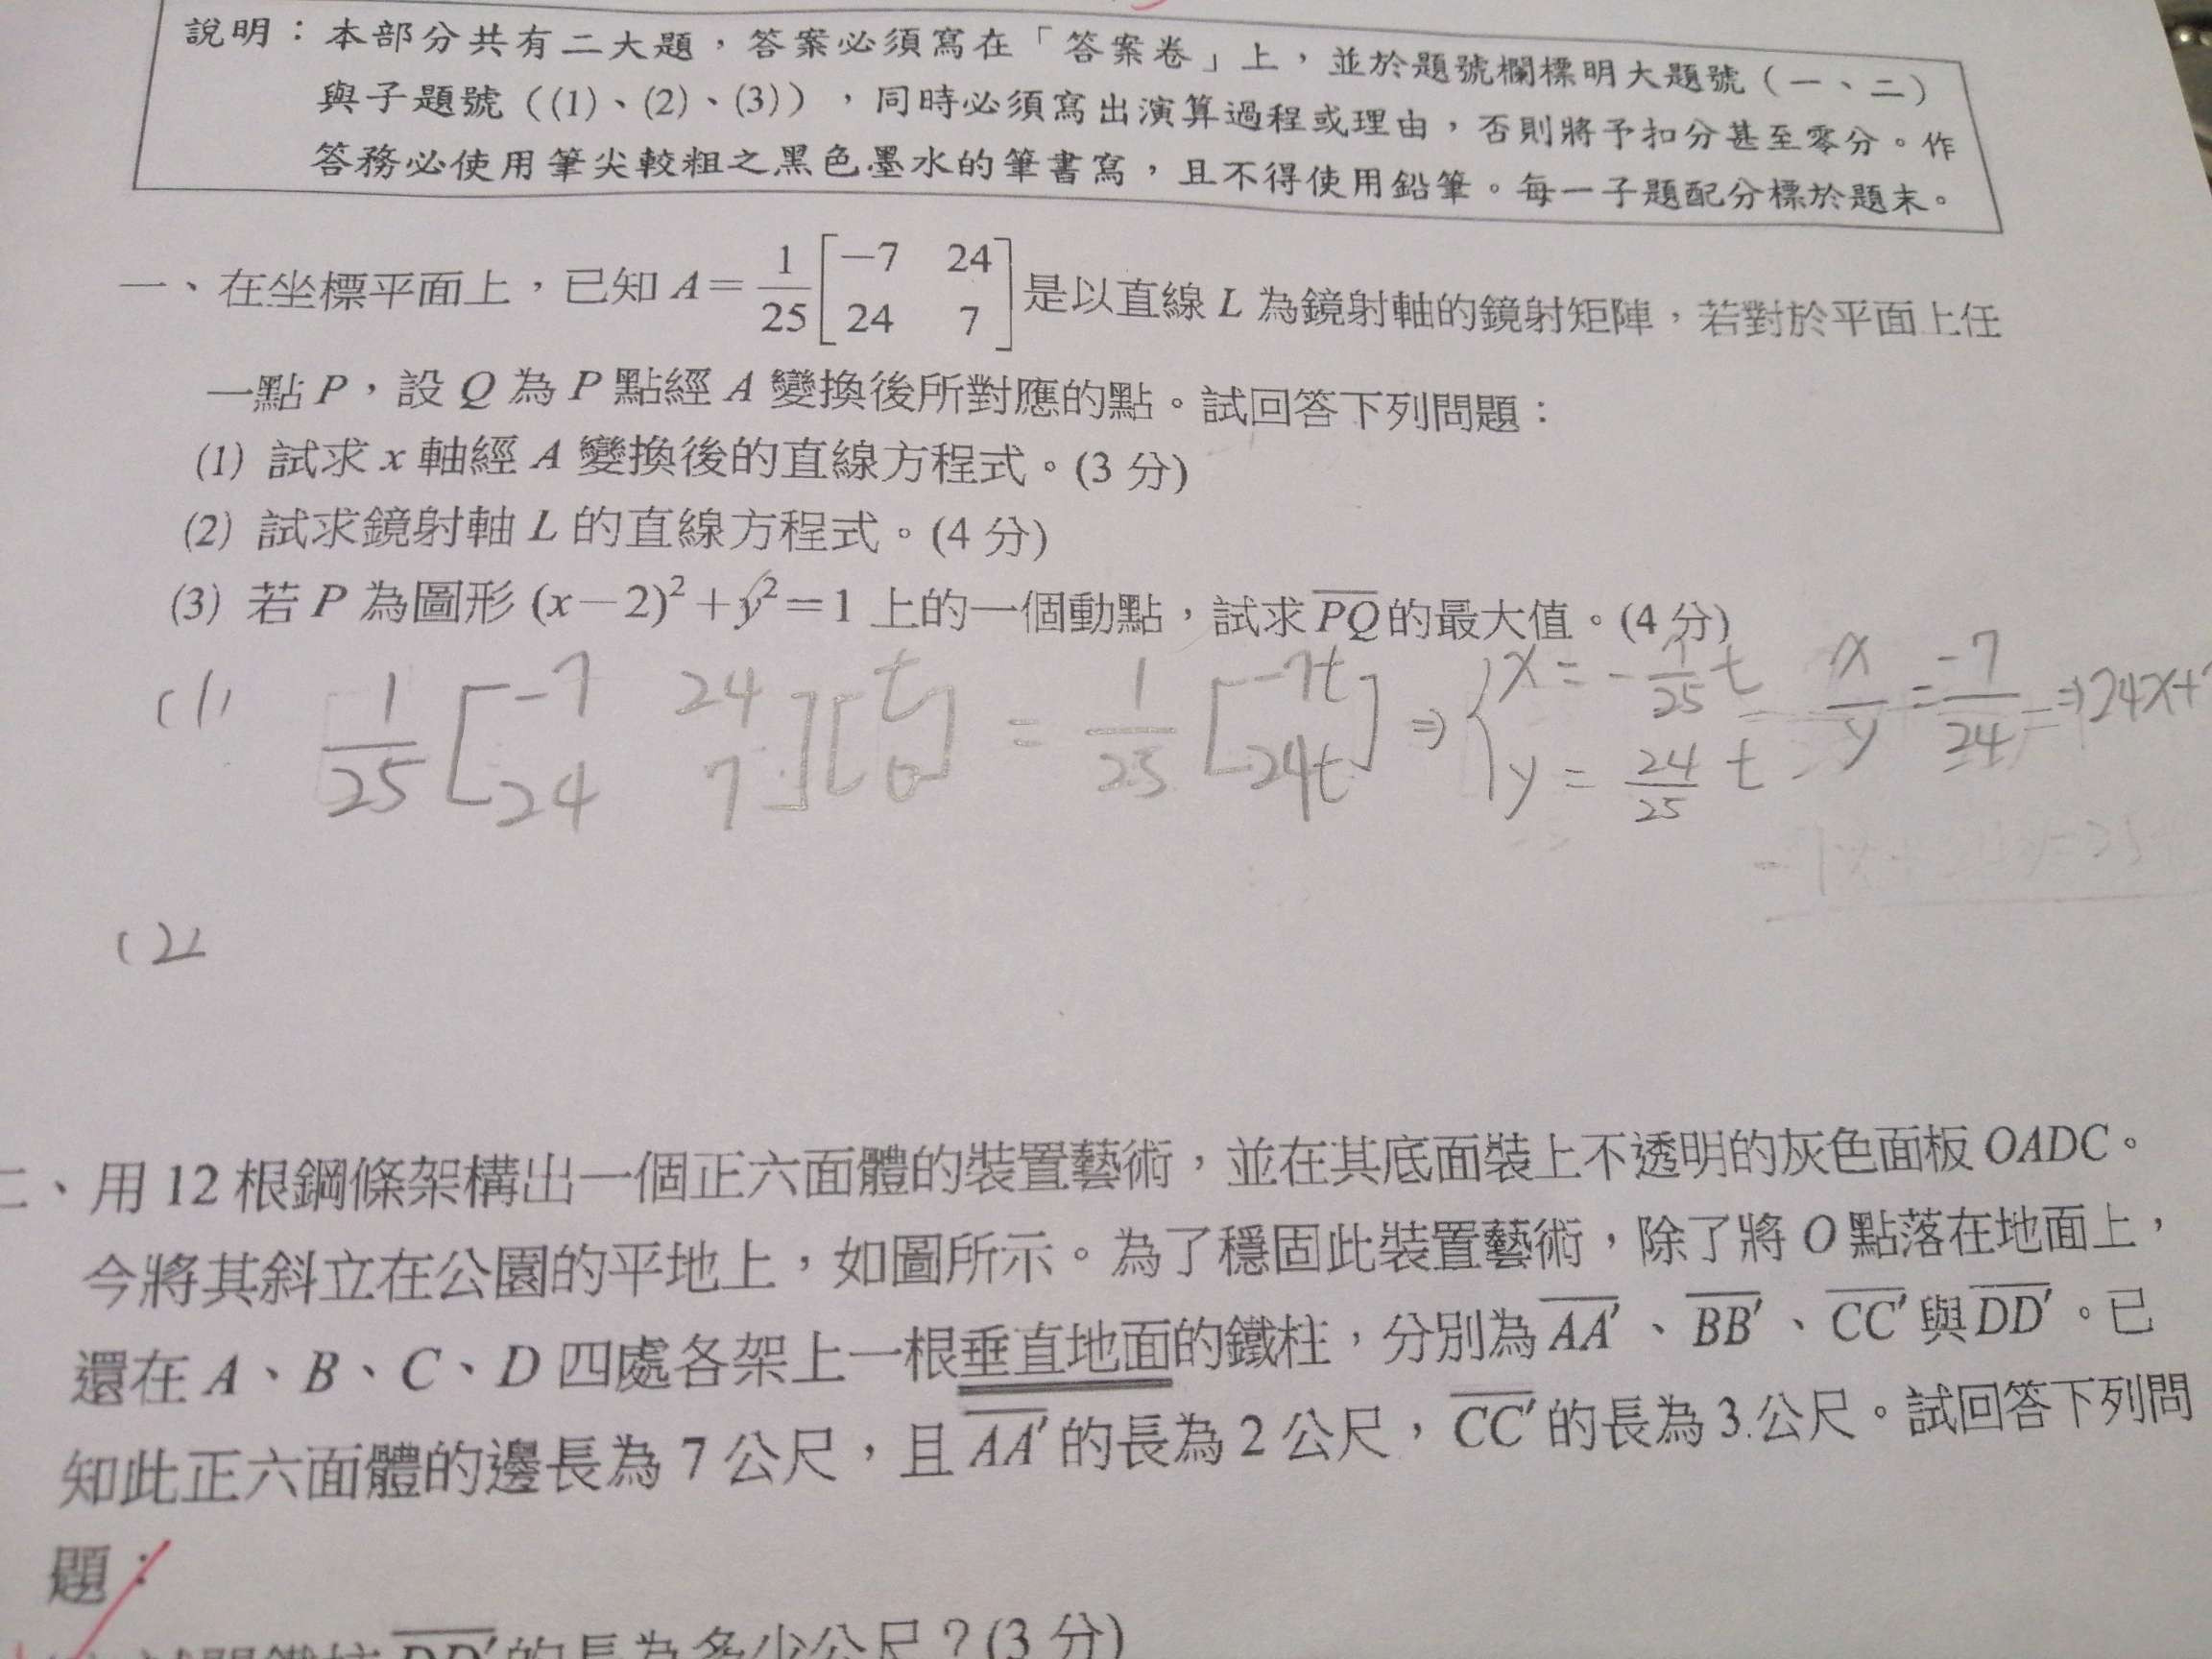 說明：本部分共有二大題，答案必須寫在「答案卷」上，並於題號欄標明大題號（一、二）
與子題號（(1)、(2)、(3)），同時必須寫出演算過程或理由，否則將予扣分甚至零分。作
答務必使用筆尖較粗之黑色墨水的筆書寫，且不得使用鉛筆。每一子題配分標於題末。
一、在坐標平面上，已知 A＝1/25[－7 24 24 7]是以直線 L 為鏡射軸的鏡射矩陣，若對於平面上任
一點 P，設 Q 為 P 點經 A 變換後所對應的點。試回答下列問題：
(1) 試求 x 軸經 A 變換後的直線方程式。(3 分)
(2) 試求鏡射軸 L 的直線方程式。(4 分)
(3) 若 P 為圖形 (x－2)²＋y²＝1 上的一個動點，試求PQ的最大值。(4 分)
(1) 1/25[-7 24 24 7][t 0] = 1/25[-7t 24t] ⇒ {x = -7/25 t y = 24/25 t x/y = -7/24 ⇒ 24x+
(2)
二、用 12 根鋼條架構出一個正六面體的裝置藝術，並在其底面裝上不透明的灰色面板 OADC。
今將其斜立在公園的平地上，如圖所示。為了穩固此裝置藝術，除了將 O 點落在地面上，
還在 A、B、C、D 四處各架上一根垂直地面的鐵柱，分別為 AA′、BB′、CC′與DD′。已
知此正六面體的邊長為 7 公尺，且 AA′的長為 2 公尺，CC′的長為 3 公尺。試回答下列問
題：
DD′的長為多少公尺？(3 分)